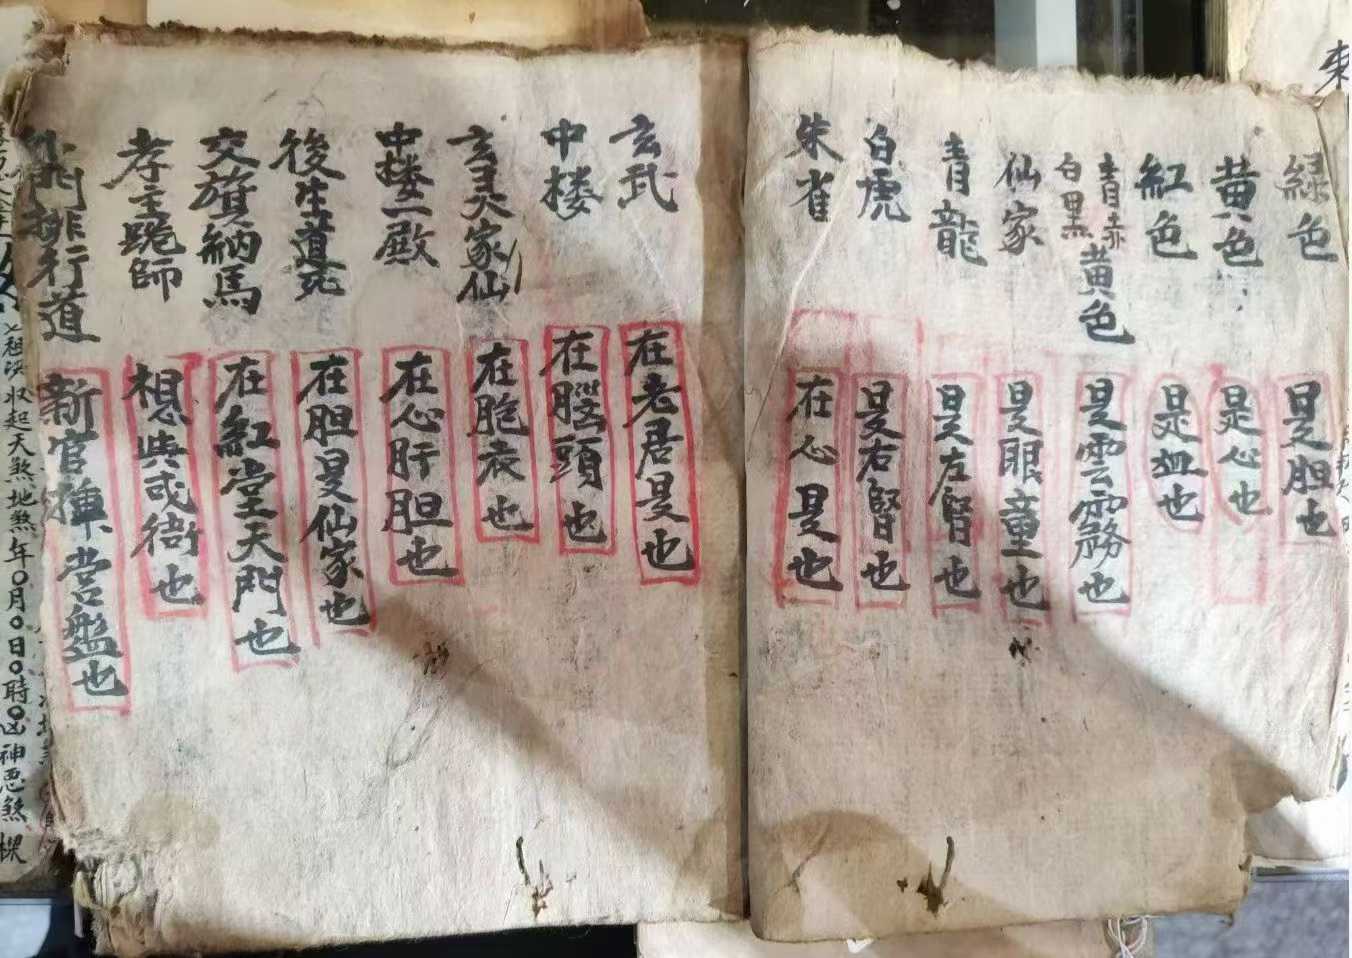 綠色 是胆也
黄色 是心也
紅色 是血也
青赤白黑黄色 是雲霧也
仙家 是眼童也
青龍 是左腎也
白虎 是右腎也
朱雀 在心是也
玄武 在老君是也
中楼 在腦頭也
玄灵家仙 在胞衣也
中楼二殿 在心肝胆也
後生道死 在胆是仙家也
交旗納馬 在紅堂天門也
孝主跪師 想與戒衙也
排行道 新官 営盤也
收起天煞地煞年〇月〇日〇時〇凶神惡煞